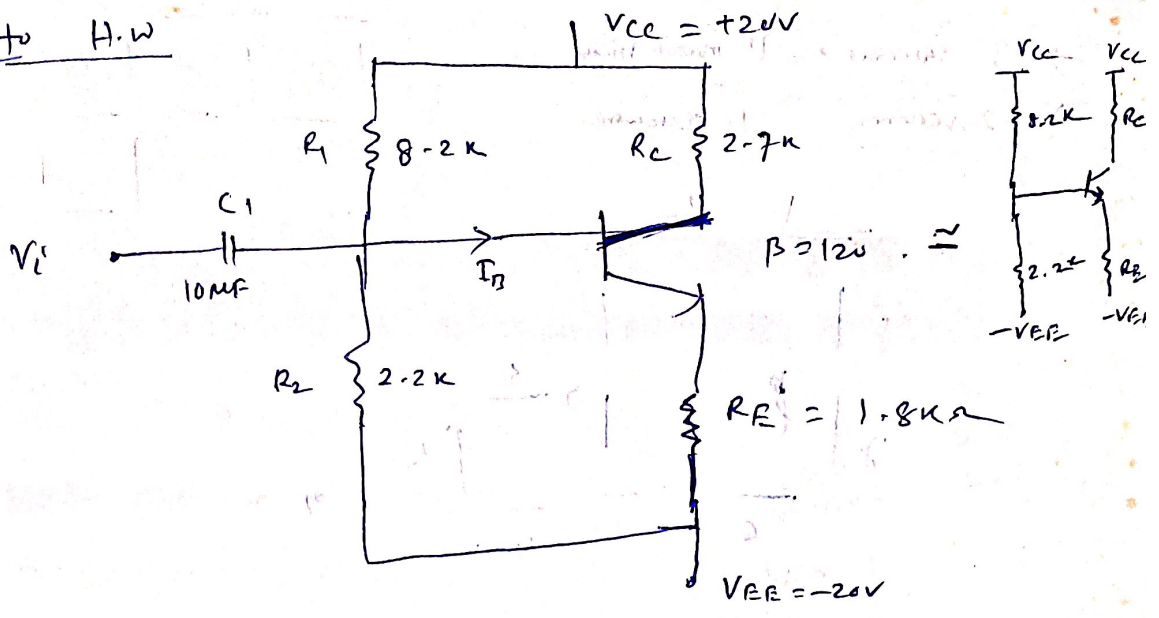 to H.W
VCC = +20V
R1 8.2K
RC 2.7K
C1
Vi
10MF
IB
β = 120 . ≃
R2 2.2K
RE = 1.8KΩ
VEE = -20V
VCC VCC
8.2K RC
2.2K RE
-VEE